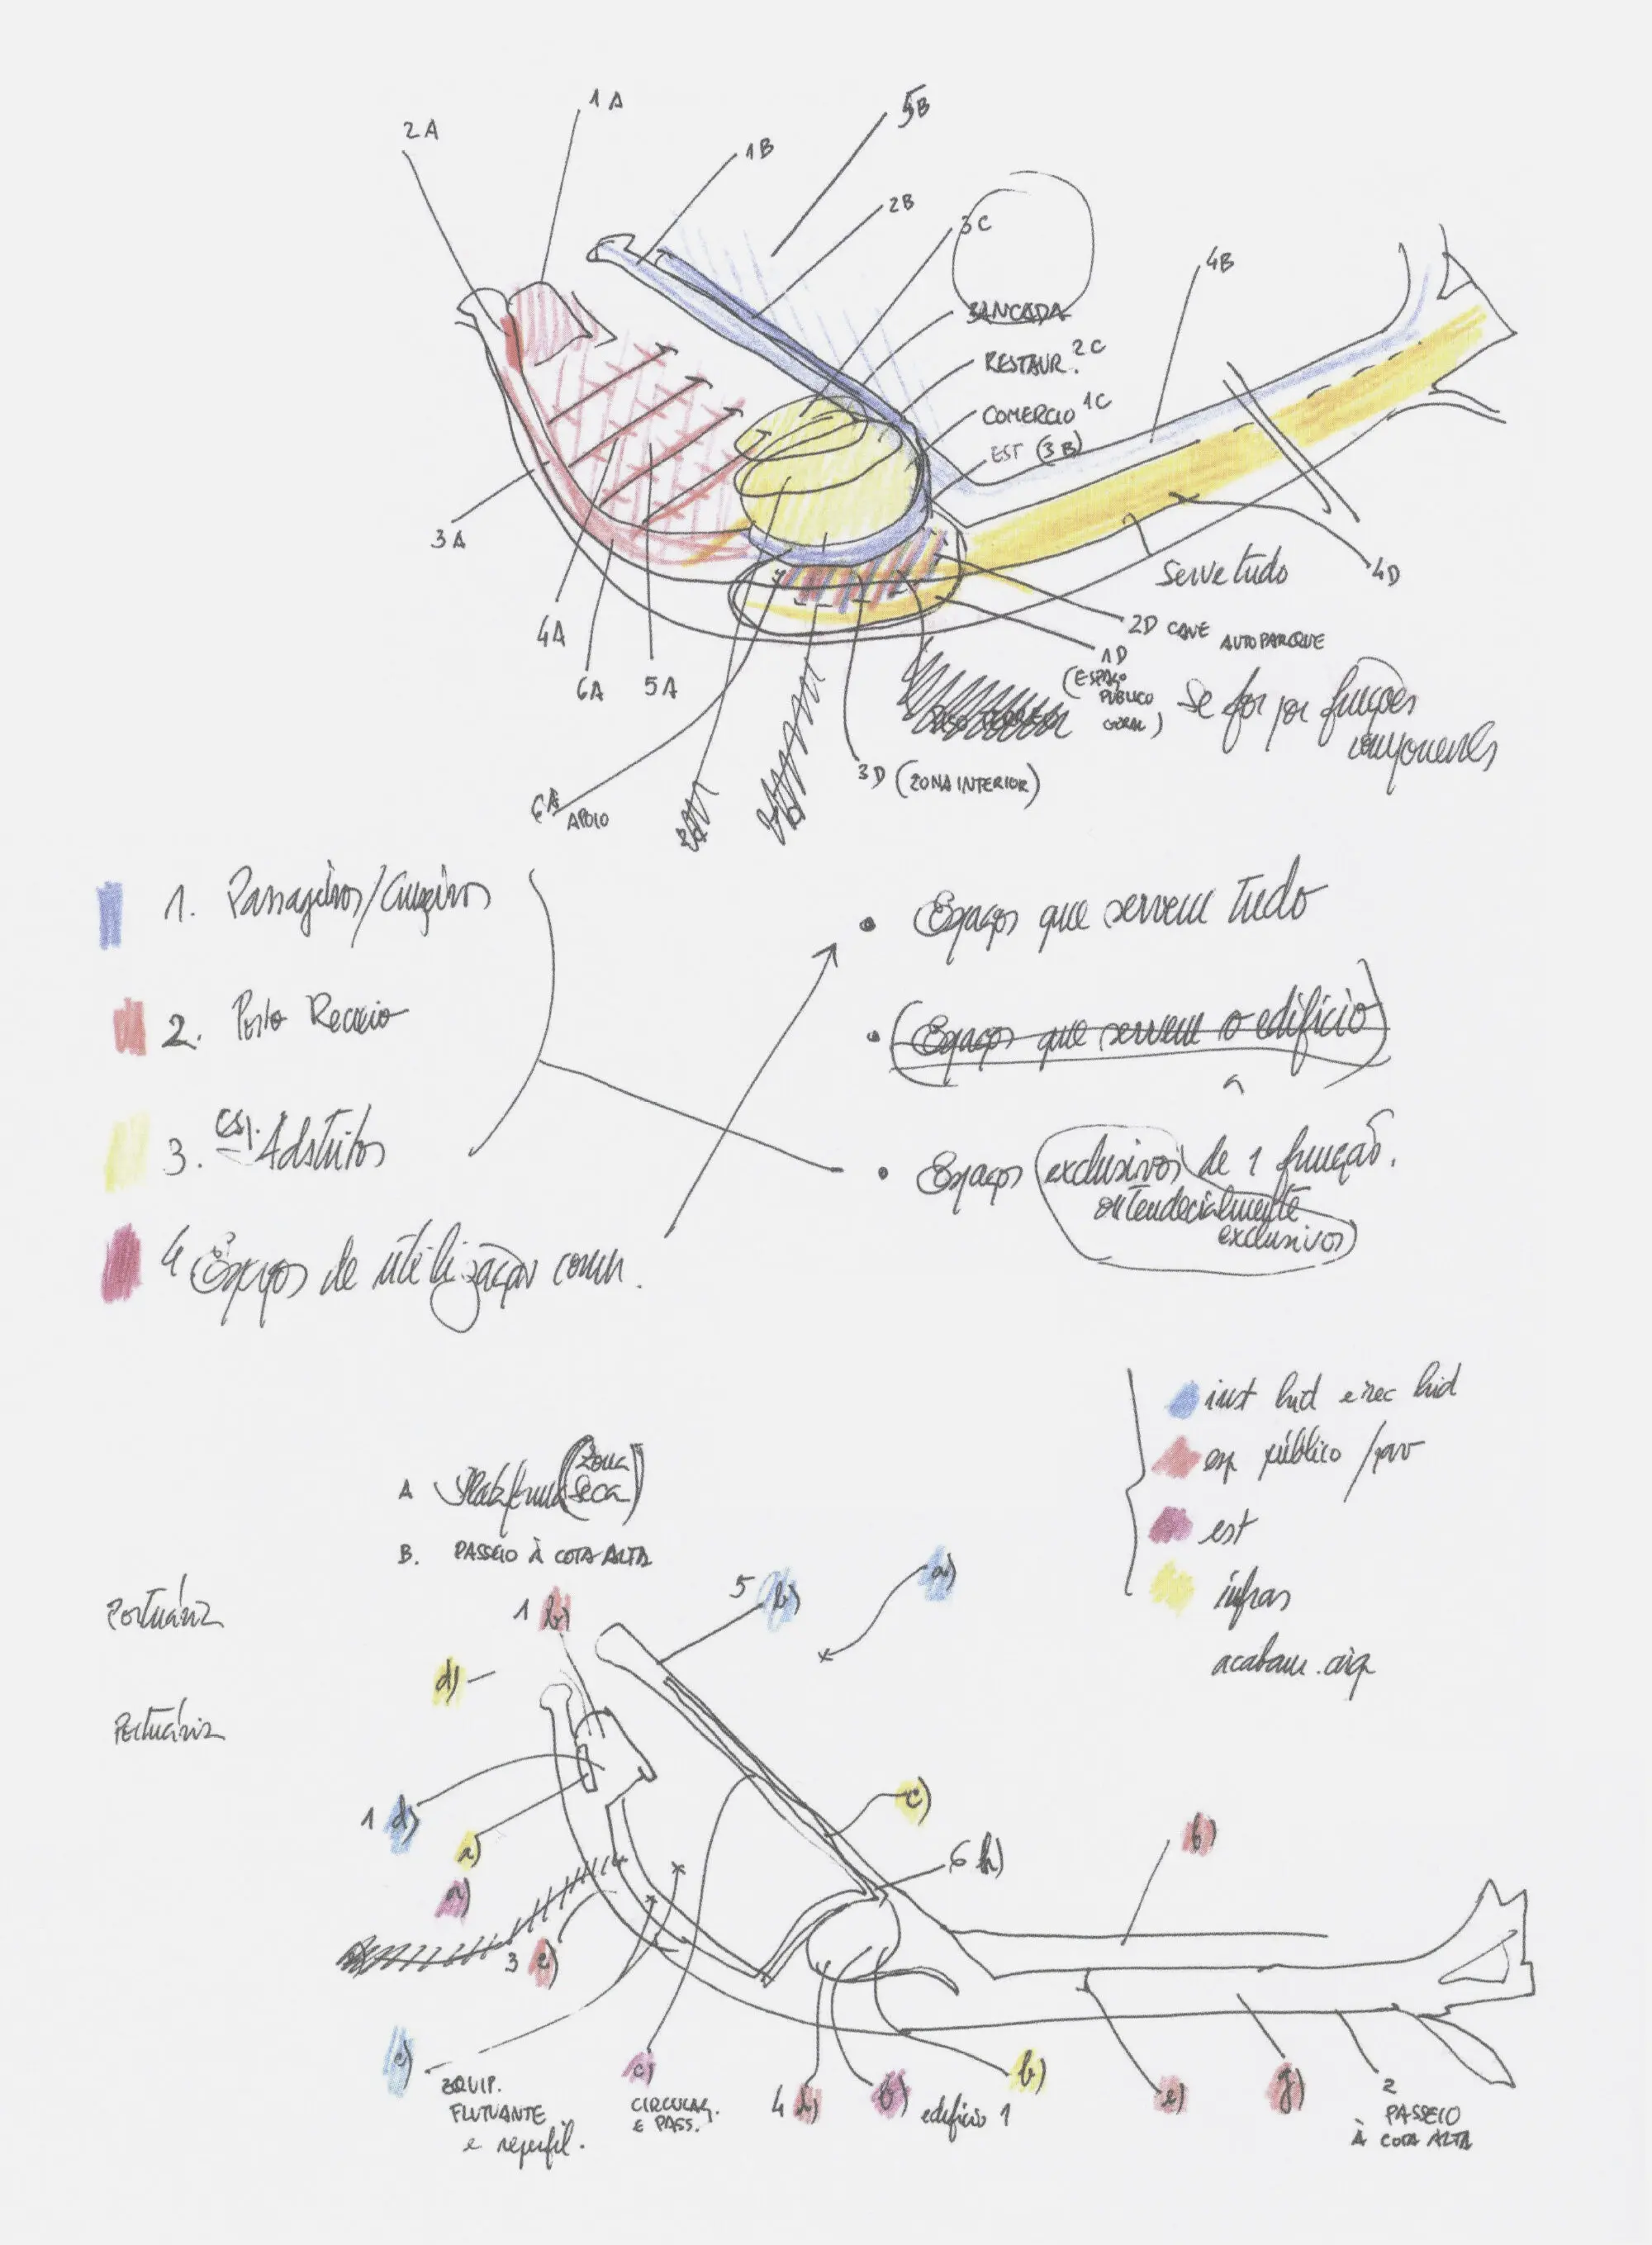 1A
2A
5B
1B
2B
3C
4B
BANCADA
RESTAUR. 2C
COMERCIO 1C
EST (3B)
3A
Serve tudo
4D
4A
2D CAVE AUTOPARQUE
6A
5A
1D
(ESPAÇO
PUBLICO
GERAL)
Se for por funções
componentes
3D (ZONA INTERIOR)
6A APOIO
1. Passageiros/Cruzeiros
Espaços que servem tudo
2. Porto Recreio
(Espaços que servem o edifício)
3. esp. Adstritos
Espaços exclusivos de 1 função.
ou tendecialmente
exclusivos
4 Espaços de utilização comum.
inst hid e rec hid
esp público / pav
est
infras
acabam. arq
A Plataforma (Zona
Seca)
B. PASSEIO À COTA ALTA
Portuária
Portuária
1 b)
5 b)
a)
d)
1 d)
a)
a)
c)
6 h)
b)
3 e)
c)
EQUIP.
FLUTUANTE
e reperfil.
c)
CIRCULAÇ.
E PASS.
4 b)
b) edifício 1
b)
e)
g)
2
PASSEIO
À COTA ALTA